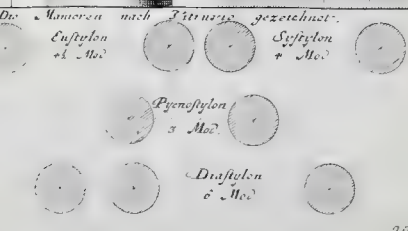 Die Manieren nach Vitruvio gezeichnet.
Eustylon
4½ Mod
Systylon
4 Mod
Pycnostylon
3 Mod.
Diastylon
6 Mod